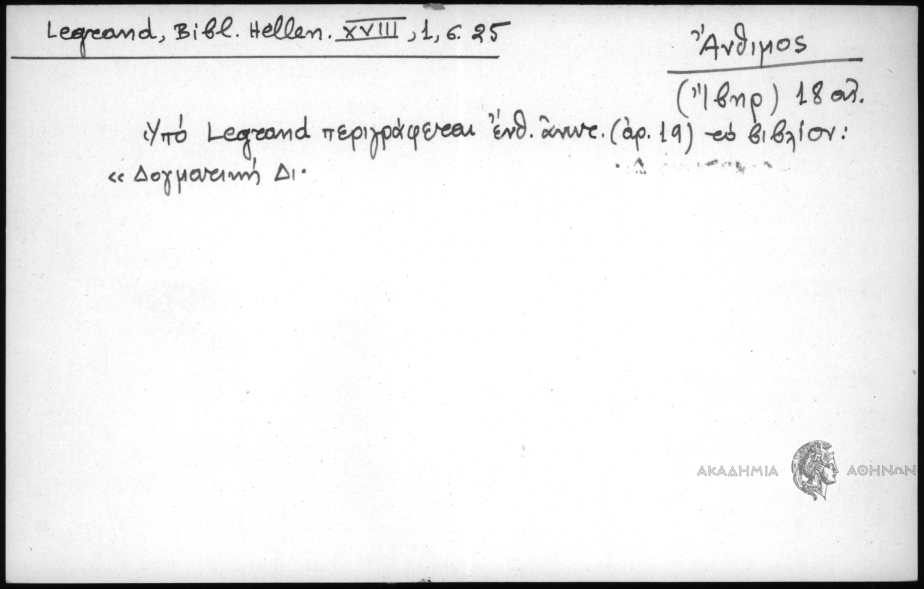 Legrand, Bibl. Hellen. XVIII, 1, σ. 25
Ἄνθιμος
(Ἴβηρ) 18 αἰ.
Ὑπό Legrand περιγράφεται ἐνθ. ἄνωτ. (ἀρ. 19) τό βιβλίον:
« Δογματική Δι.
ΑΚΑΔΗΜΙΑ ΑΘΗΝΩΝ